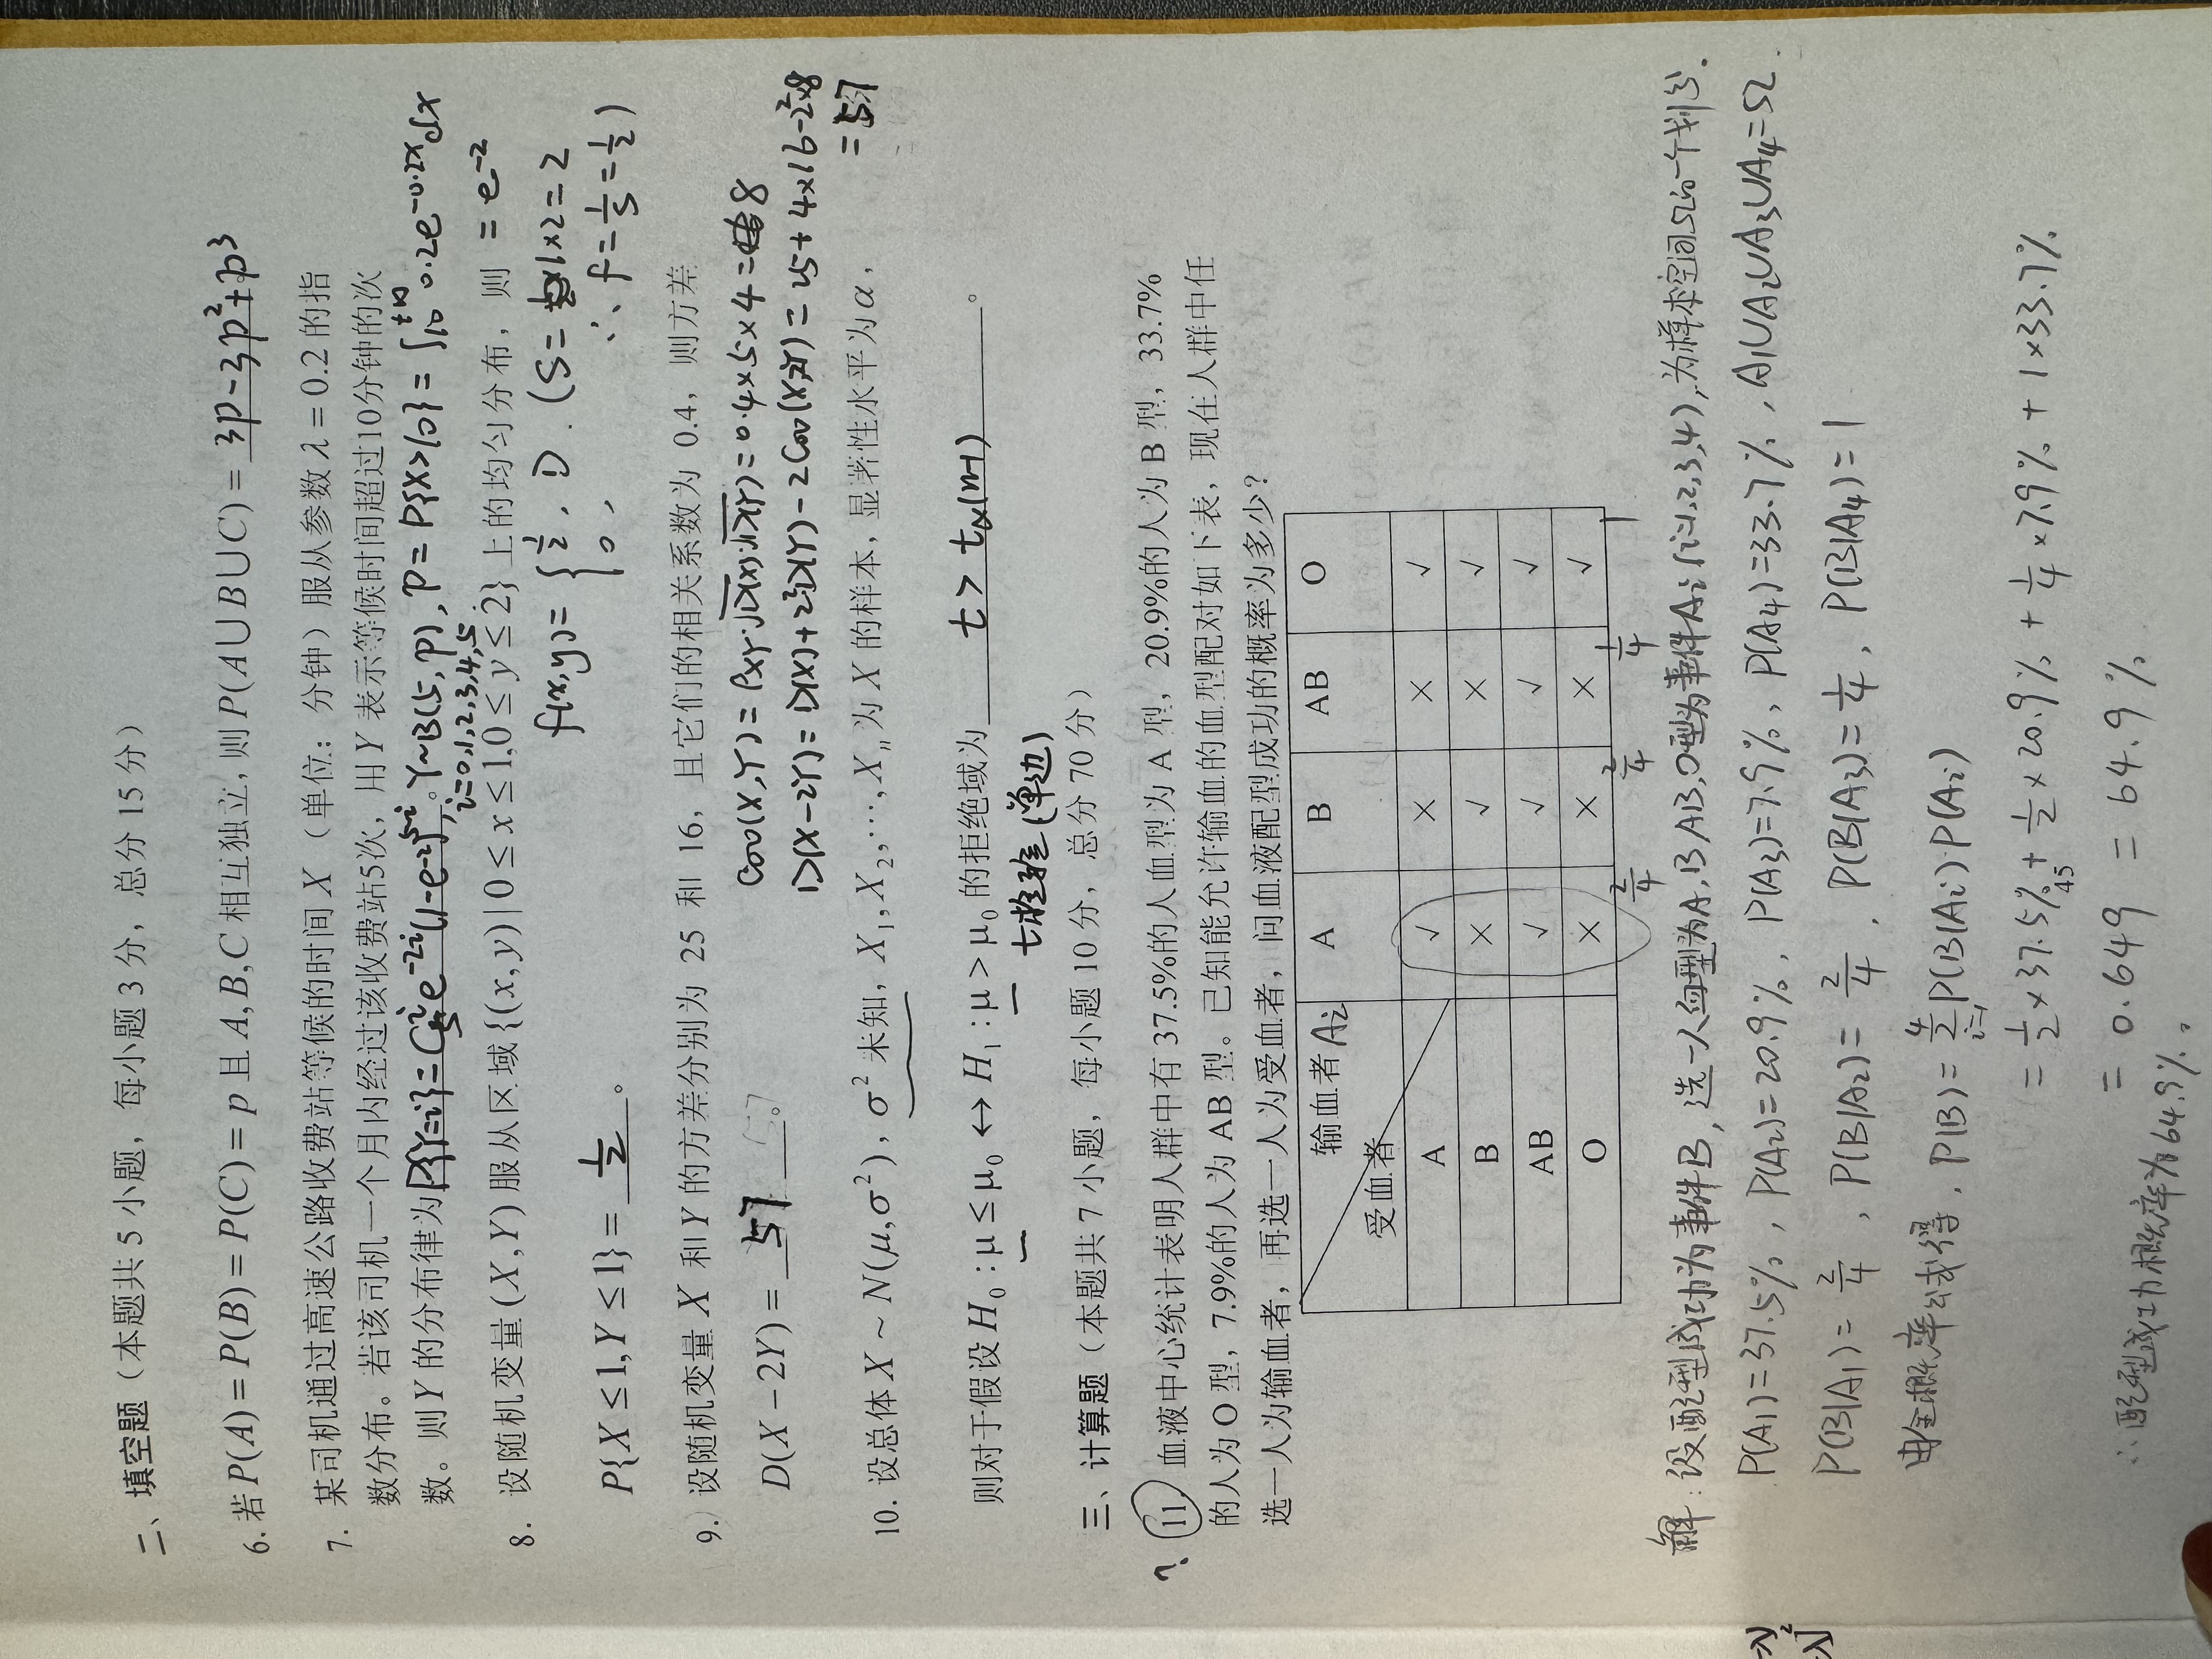 二、填空题（本题共 5 小题，每小题 3 分，总分 15 分）
6. 若 P(A) = P(B) = P(C) = p 且 A, B, C 相互独立, 则 P(A∪B∪C) = 3p-3p²+p³
7. 某司机通过高速公路收费站等候的时间 X （单位：分钟）服从参数 λ = 0.2 的指
数分布。若该司机一个月内经过该收费站5次，用 Y 表示等候时间超过10分钟的次
数。则 Y 的分布律为 P{Y=i}=C₅ⁱe⁻²ⁱ(1-e⁻²)⁵⁻ⁱ。Y~B(5,p), P=P{X>10}=∫₁₀^{+∞}0.2e^{-0.2x}dx
i=0,1,2,3,4,5.
8. 设随机变量 (X,Y) 服从区域 {(x,y)|0≤x≤1,0≤y≤2} 上的均匀分布，则 =e⁻²
f(x,y)={1/2, D. (S=×1×2=2
0, ∴f=1/S=1/2)
P{X≤1,Y≤1}= 1/2 。
9. 设随机变量 X 和 Y 的方差分别为 25 和 16，且它们的相关系数为 0.4，则方差
Cov(X,Y)=ρxy·√D(X)·√D(Y)=0.4×5×4=8
D(X-2Y)= 57 。
D(X-2Y)=D(X)+2²D(Y)-2Cov(X,2Y)=25+4×16-2²×8
=57
10. 设总体 X ~ N(μ,σ²)，σ² 未知，X₁,X₂,⋯,Xₙ 为 X 的样本, 显著性水平为 α，
则对于假设 H₀:μ≤μ₀ ↔ H₁:μ>μ₀ 的拒绝域为 t>tα(n-1) 。
t检验(单边)
三、计算题（本题共 7 小题，每小题 10 分，总分 70 分）
? 11. 血液中心统计表明人群中有 37.5%的人血型为 A 型，20.9%的人为 B 型，33.7%
的人为 O 型，7.9%的人为 AB 型。已知能允许输血的血型配对如下表，现在人群中任
选一人为输血者，再选一人为受血者，问血液配型成功的概率为多少？
输血者 Ai A B AB O
受血者
A √ × × √
B × √ × √
AB √ √ √ √
O × × × √
2/4 2/4 1/4 1
解：设配型成功为事件B, 选一人血型为A,B AB,O型为事件Ai (i=1,2,3,4), 为样本空间Ω的一个划分.
P(A₁)=37.5%, P(A₂)=20.9%, P(A₃)=7.9%, P(A₄)=33.7%, A₁∪A₂∪A₃∪A₄=Ω.
P(B|A₁)=2/4, P(B|A₂)=2/4, P(B|A₃)=1/4, P(B|A₄)=1
由全概率公式得, P(B)=Σ_{i=1}^{4}P(B|Ai)·P(Ai)
=1/2×37.5%+1/2×20.9%+1/4×7.9%+1×33.7%
45
=0.649=64.9%
∴配型成功概率为64.9%。